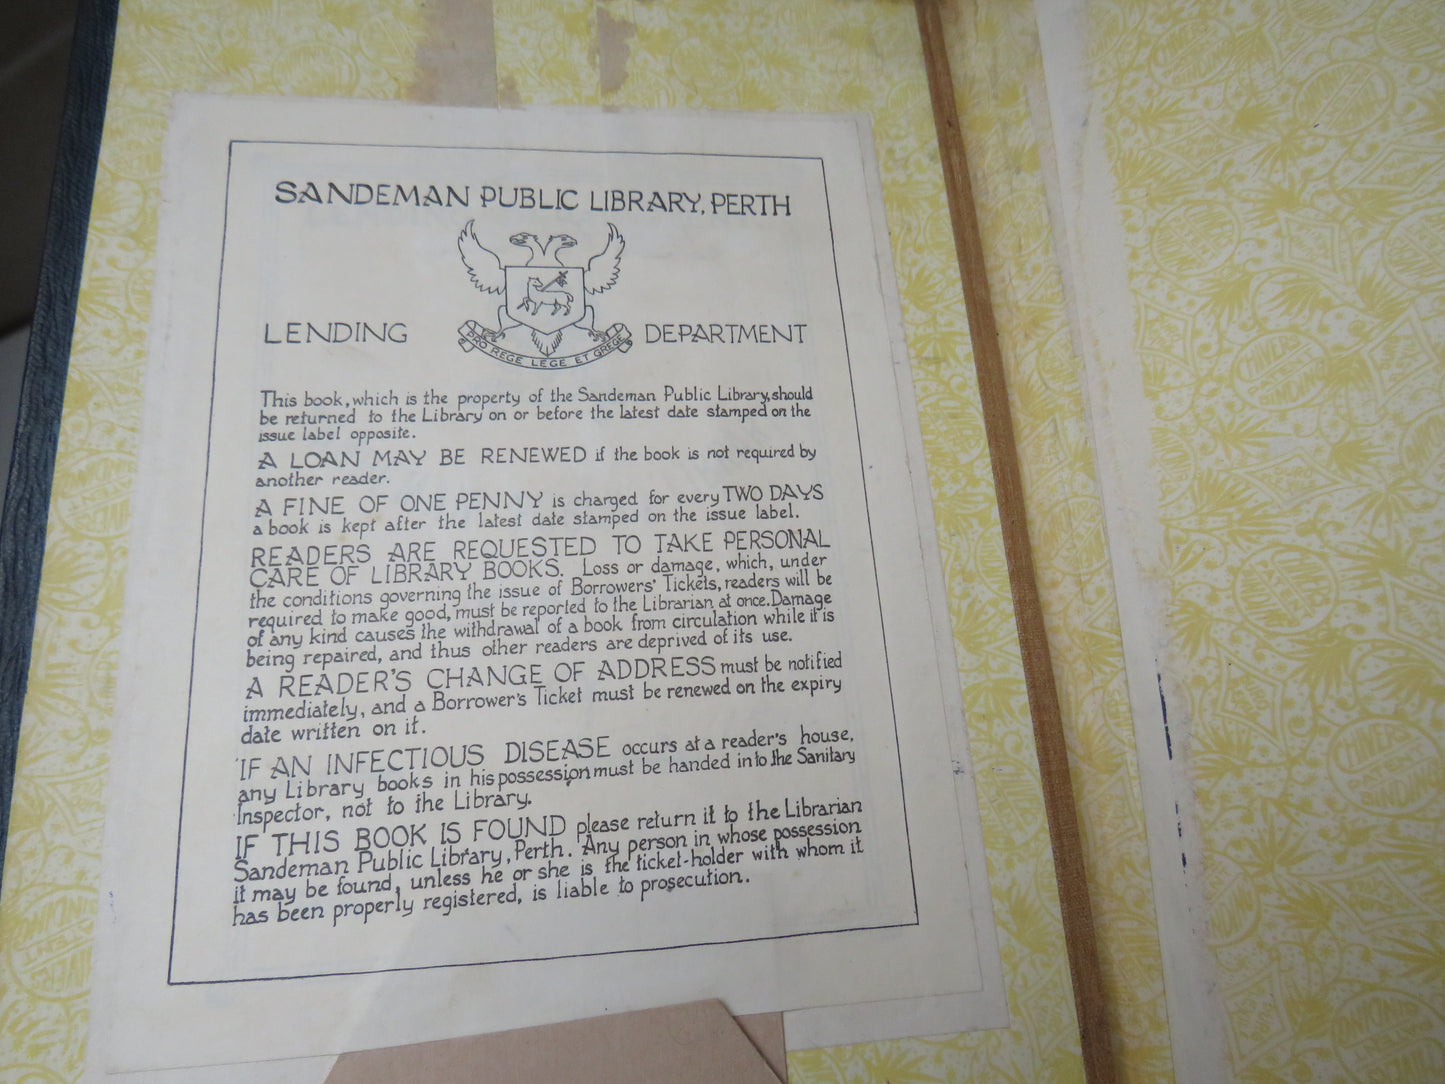 SANDEMAN PUBLIC LIBRARY, PERTH
LENDING DEPARTMENT
PRO REGE LEGE ET GREGE
This book, which is the property of the Sandeman Public Library, should
be returned to the Library on or before the latest date stamped on the
issue label opposite.
A LOAN MAY BE RENEWED if the book is not required by
another reader.
A FINE OF ONE PENNY is charged for every TWO DAYS
a book is kept after the latest date stamped on the issue label.
READERS ARE REQUESTED TO TAKE PERSONAL
CARE OF LIBRARY BOOKS. Loss or damage, which, under
the conditions governing the issue of Borrowers' Tickets, readers will be
required to make good, must be reported to the Librarian at once. Damage
of any kind causes the withdrawal of a book from circulation while it is
being repaired, and thus other readers are deprived of its use.
A READER'S CHANGE OF ADDRESS must be notified
immediately, and a Borrower's Ticket must be renewed on the expiry
date written on it.
IF AN INFECTIOUS DISEASE occurs at a reader's house,
any Library books in his possession must be handed in to the Sanitary
Inspector, not to the Library.
IF THIS BOOK IS FOUND please return it to the Librarian
Sandeman Public Library, Perth. Any person in whose possession
it may be found, unless he or she is the ticket-holder with whom it
has been properly registered, is liable to prosecution.